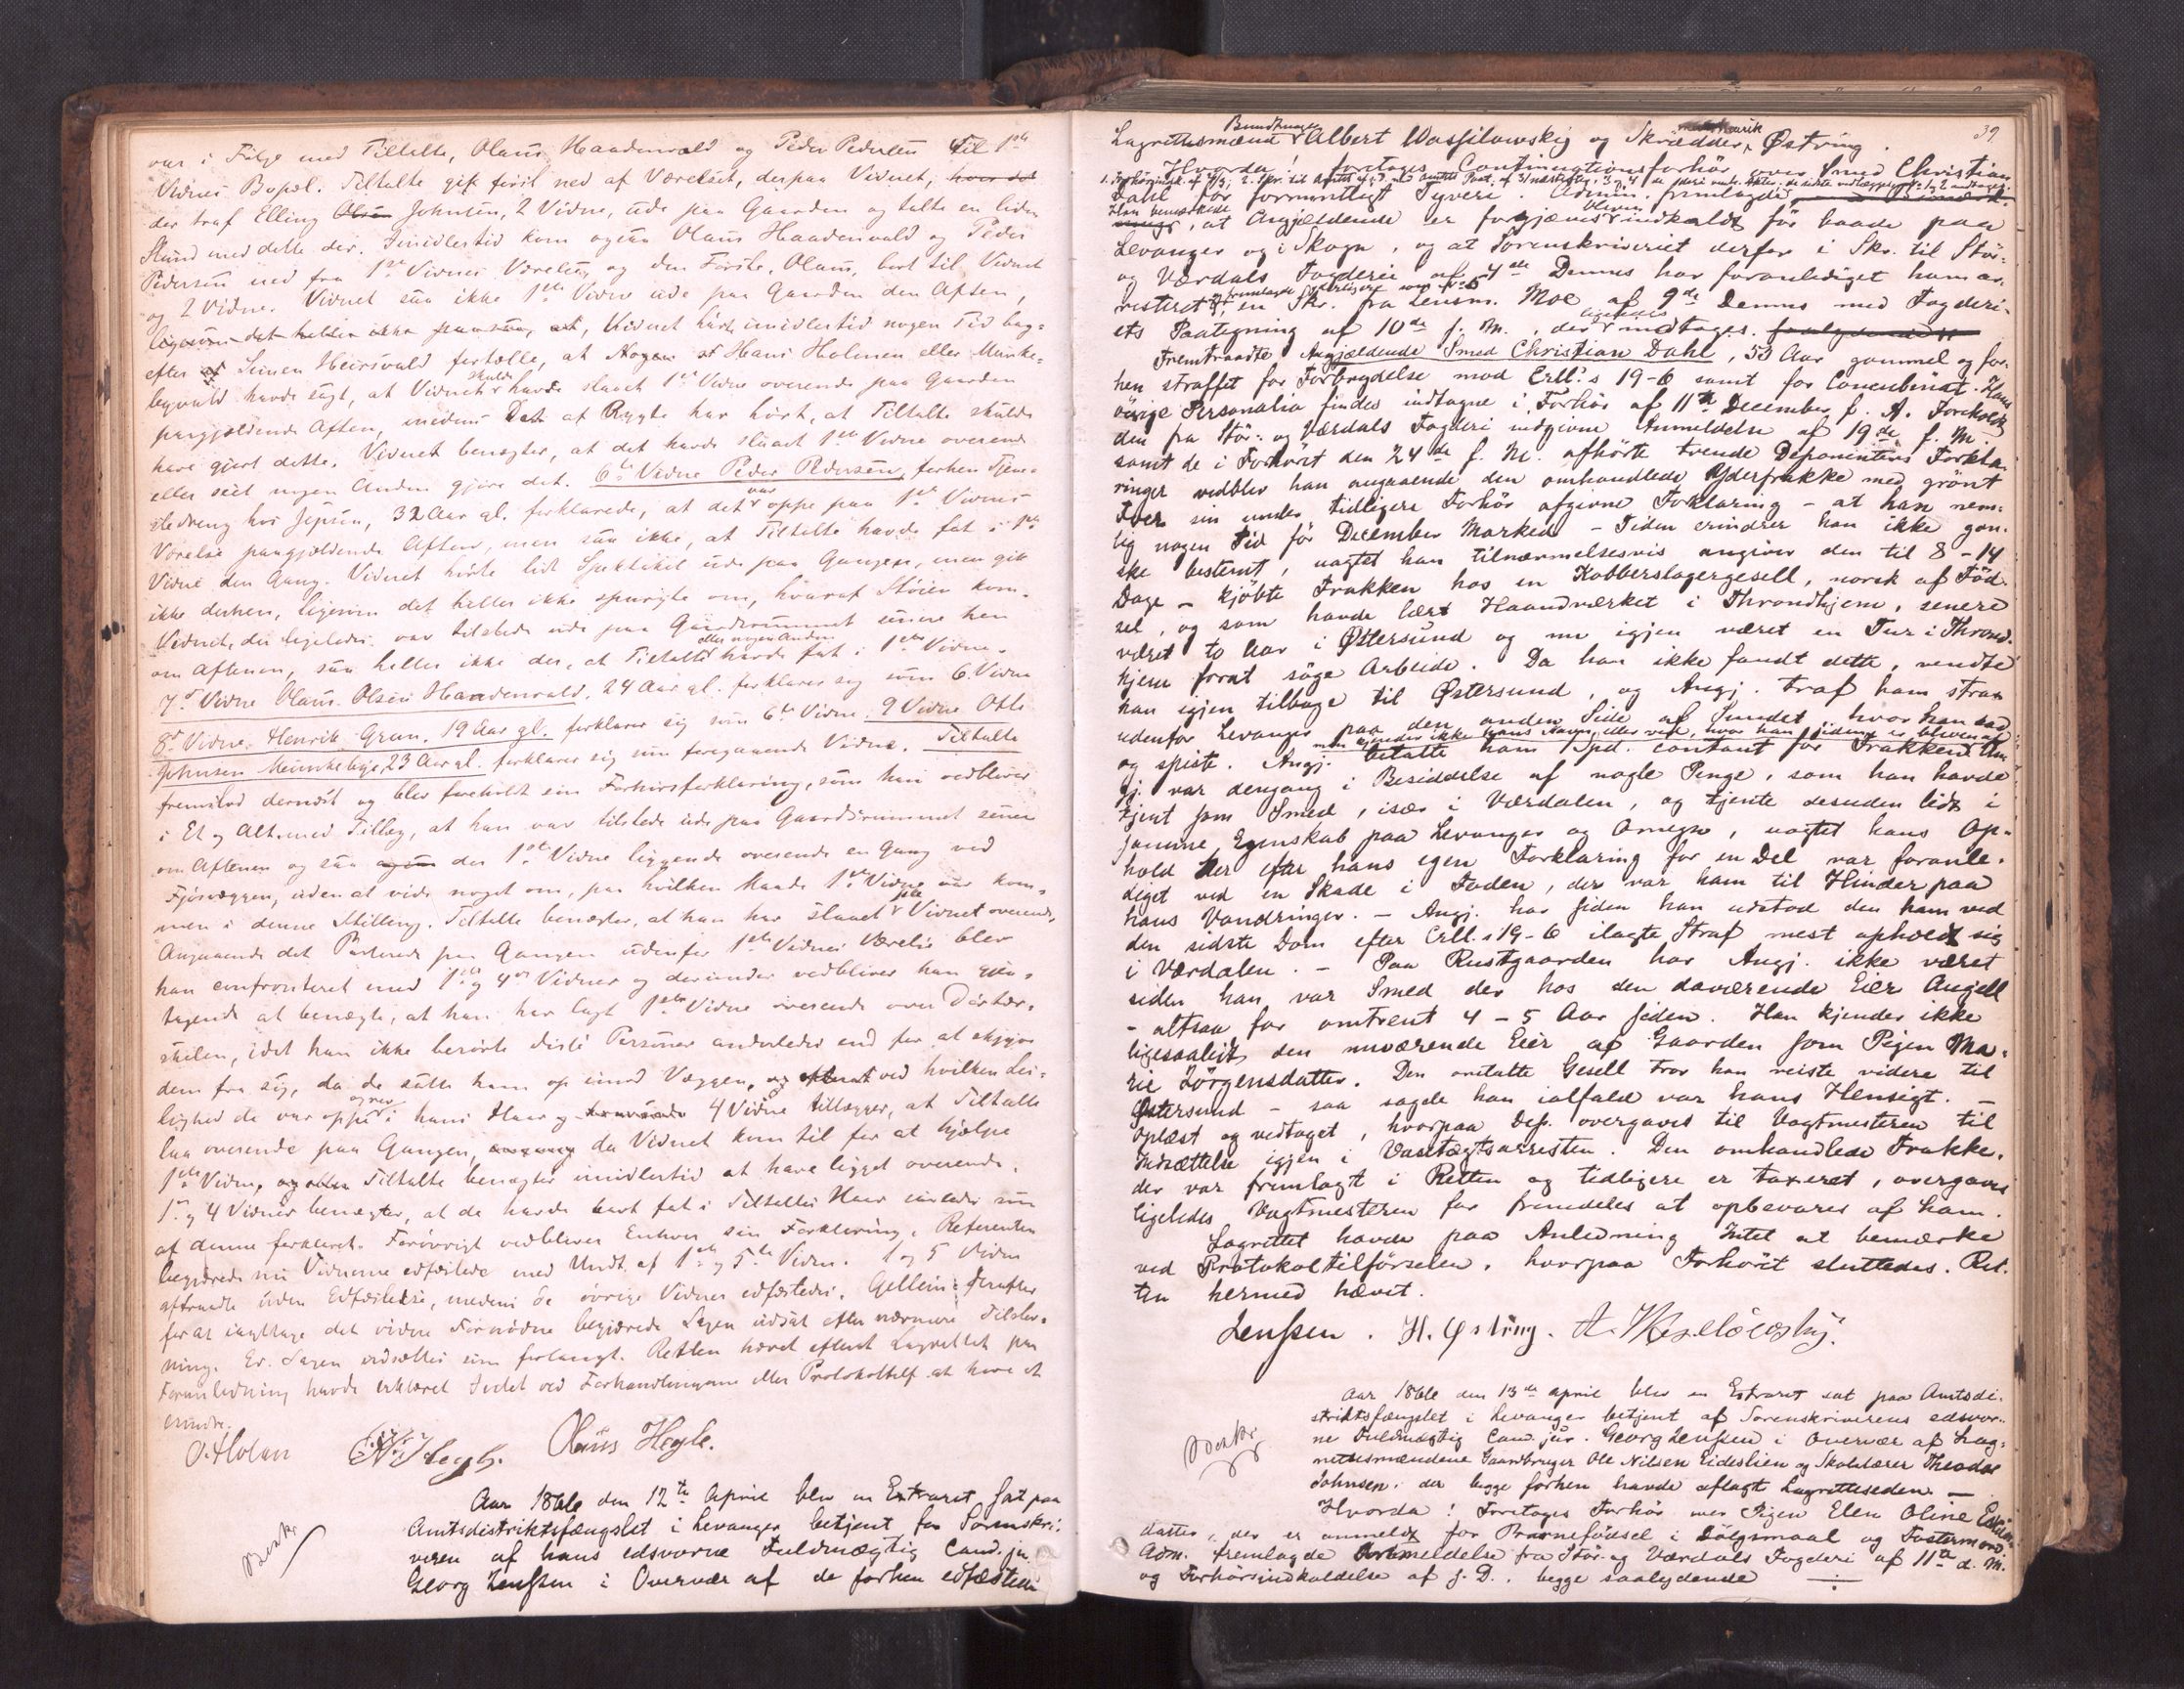 var i Følge med Tiltalte, Olaus Haadenvald og Peder Pedersen til 1ste
Vidnes Bopæl. Tiltalte gik først ned af Værelset, derpaa Vidnet, hvor det
der traf Elling Olsen Johnsen, 2 Vidne, ude paa Gaarden og talte en liden
Stund med dette der. Imidlertid kom ogsaa Olaus Haadenvald og Peder
Pedersen ned fra 1ste Vidnes Værelse, og den Første, Olaus, bort til Vidnet
og 2 Vidne. Vidnet saa ikke 1ste Vidne ude paa Gaarden den Aften,
ligesom det heller ikke, Vidnet hørte imidlertid nogen Tid bag-
efter af Heirsvald fortælle, at Nogen af Hans Holmen eller Munke-
bugvald havde sagt, at Vidnet skulde havde slaaet 1ste Vidne overende paa Gaarden
paagjældende Aften, medens Det af Rygte har hørt, at Tiltalte skulde
have gjort dette. Vidnet benægter, at det havde slaaet 1ste Vidne overende
eller seet nogen Anden gjøre det. 6te Vidne Peder Pedersen, forhen Tjene-
stedreng hos Jepsen, 32 Aar gl. forklarede, at det var oppe paa 1ste Vidnes
Værelse paagjældende Aften, men saa ikke, at Tiltalte havde fat i 1ste
Vidne den Gang. Vidnet hørte lidt Spektakel ude paa Gangen, men gik
ikke derhen, ligesom det heller ikke spurgte om, hvoraf Støien kom.
Vidnet, der ligeledes var tilstede ude paa Gaardsrummet senere hen
om Aftenen, saa heller ikke der, at Tiltalte eller nogen Anden havde fat i 1ste Vidne.
7de Vidne Olaus Olsen Haadenvald, 24 Aar gl. forklarer sig som 6 Vidne
8de Vidne, Henrik Gran, 19 Aar gl. forklarer sig som 6te Vidne. 9 Vidne Otto
Johnsen Munkebye, 23 Aar gl. forklarer sig som foregaaende Vidne. Tiltalte
fremstod dernæst og blev foreholdt sin Forhørsforklaring, som han vedbliver
i Et og Alt, med Tillæg, at han var tilstede ude paa Gaardsrummet senere
om Aftenen og saa der 1ste Vidne liggende overende en Gang ved
Fjøsvæggen, uden at vide noget om, paa hvilken Maade 1ste Vidne var kom-
men i denne Stilling. Tiltalte benægter, at han har slaaet Vidnet overende,
Angaaende det Passerede paa Gangen udenfor 1ste Vidnes Værelse blev
han confronteret med 1ste og 4de Vidner og derunder vedbliver han gjen-
tagende at benægte, at han har lagt 1ste Vidne overende over Dørtær-
skelen, idet han ikke berørte disse Personer anderledes end for at skjyve
dem fra sig, da de satte ham op imod Væggen, ved hvilken Lei-
lighed de var oppe og rev i hans Haar og 4 Vidne tillægger, at Tiltalte
laa overende paa Gangen, da Vidnet kom til for at hjælpe
1ste Vidne, Tiltalte benægter imidlertid at have ligget overende.
1ste og 4 Vidner benægter, at de havde havt fat i Tiltaltes Haar saaledes som
af denne forklaret. Forøvrigt vedbliver Enhver sin Forklaring. Referenten
begjærede nu Vidnerne edfæstede med Undt. af 1ste og 5te Vidne. 1 og 5 Vidne
aftraadte uden Edfæstelse, medens de øvrige Vidner edfæstedes.
for at iagttage det videre Fornødne begjærede Sagen udsat efter nærmere Tilstev-
ning. Ev. Sagen udsættes som forlangt. Retten hævet efterat Lagrettet paa
Foranledning havde erklæret Intet ved Forhandlingerne eller Protokollatet at have at
erindre.
O. Holan Olaus Hegle.
Beskr.
Aar 1866 den 12te April blev en Extraret sat paa
Amtsdistriktsfængslet i Levanger betjent for Sorenskri-
veren af hans edsvorne Fuldmægtig Cand. jur.
Georg Jenssen i Overvær af de forhen edfæstede
39
Lagrettesmænd Bundtmager Albert Wassilowskij og Skrædder Henrik Østring.
Hvorda! foretages Continuationsforhør over Smed Christian
Dahl for formentligt Tyveri. Admin. fremlagde
Han bemærkede, at Angjældende er forgjæves bleven indkaldt før baade paa
Levanger og i Skogn, og at Sorenskriveriet derfor i Skr. til Stør-
og Værdals Fogderi af 4de Dennes har foranlediget ham ar-
resteret, fremlagde yderligere som No 6 en Skr. fra Lensm. Moe af 9de Dennes med Fogderi-
ets Paategning af 10de s. M., der ligeledes modtages.
Fremtraadte Angjældende Smed Christian Dahl, 53 Aar gammel og for-
hen straffet for Forbrydelse mod Crll.'s 19-6 samt for Concubinat. Hans
øvrige Personalia findes indtagne i Forhør af 11te December f. A. Foreholdt
den fra Stør- og Værdals Fogderi indgivne Anmeldelse af 19de f. M.
samt de i Forhøret den 24de f. M. afhørte tvende Deponenters Forkla-
ringer vedblev han angaaende den omhandlede Yderfrakke med grønt
Foer sin under tidligere Forhør afgivne Forklaring – at han nem-
lig nogen Tid før December Marked – Tiden erindrer han ikke gan-
ske bestemt, uagtet han tilnærmelsesvis angiver den til 8 – 14
Dage – kjøbte Frakken hos en Kobberslagergesell, norsk af Fød-
sel, og som havde lært Haandværket i Throndhjem, senere
været to Aar i Østersund og nu igjen været en Tur i Thrond-
hjem forat søge Arbeide. Da han ikke fandt dette, vendte
han igjen tilbage til Østersund, og Angj. traf ham strax
udenfor Levanger paa den anden Side af Sundet, hvor han sad
men kjender ikke hans Navn eller ved, hvor han siden er bleven af
og spiste. Angj. betalte ham 1 Spd. contant for Frakken. An-
gj. var dengang i Besiddelse af nogle Penge, som han havde
tjent som Smed, især i Værdalen, og tjente desuden lidt i
samme Egenskab paa Levanger og Omegn, uagtet hans Op-
hold der efter hans egen Forklaring for en Del var foranle-
diget ved en Skade i Foden, der var ham til Hinder paa
hans Vandringer. – Angj. har siden han udstod den ham ved
den sidste Dom efter Crll.s 19-6 ilagte Straf mest opholdt sig
i Værdalen. – Paa Rustgaarden har Angj. ikke været
siden han var Smed der hos den daværende Eier Angell
– altsaa for omtrent 4 – 5 Aar siden. Han kjender ikke
ligesaalidt den nuværende Eier af Gaarden som Pigen Ma-
rie Jörgensdatter. Den omtalte Gesell tror han reiste videre til
Østersund – saa sagde han ialfald var hans Hensigt. –
Oplæst og vedtaget, hvorpaa Dep. overgaves til Vagtmesteren til
Indsættelse igjen i Varetægtsarresten. Den omhandlede Frakke,
der var fremlagt i Retten og tidligere er taxeret, overgaves
ligeledes Vagtmesteren for fremdeles at opbevares af ham.
Lagrettet havde paa Anledning Intet at bemærke
ved Protokoltilførselen, hvorpaa Forhöret sluttedes. Ret-
ten hermed hævet.
Jenssen. H. Østring.
Beskr.
Aar 1866 den 13de April blev en Extraret sat paa Amtsdi-
striktsfængslet i Levanger betjent af Sorenskriverens edsvor-
ne Fuldmægtig Cand. jur. Georg Jenssen i Overvær af Lag-
rettesmændene Gaardbruger Ole Nilsen Eideslien og Skolelærer Theodor
Johnsen, der begge forhen havde aflagt Lagretteseden. —
Hvorda! Foretages Forhør over Pigen Elen Oline
datter, der er anmeldt for Barnefödsel i Dölgsmaal og Fostermord
Adm. fremlagde Anmeldelse fra Stör- og Værdals Fogderi af 11te d. M.
og Forhörsindkaldelse af s. D., begge saalydende